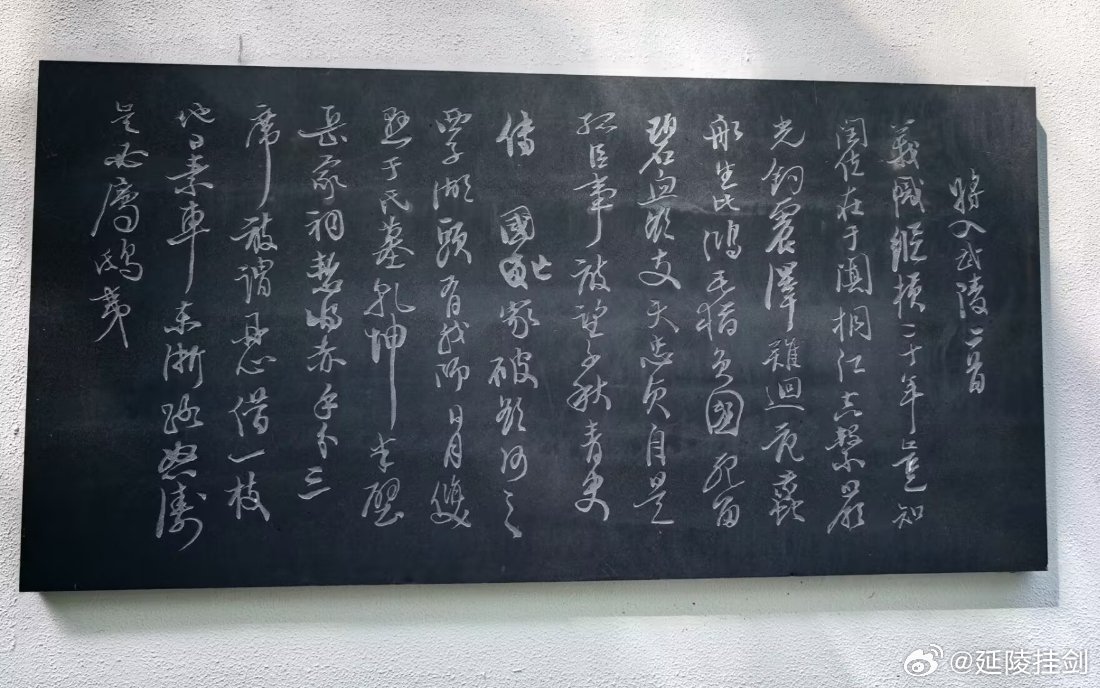 將入武陵二首
義幟縱橫二十年豈知
閏位在于闐桐江空繫嚴
光釣震澤難迴范蠡
船生比鴻毛猶負國死留
碧血欲支天忠貞自是
孤臣事敢望千秋青史
傳 國亡家破欲何之
西子湖頭有我師日月雙
懸于氏墓乾坤半壁
岳家祠慙將赤手分三
席敢謂丹心借一枝
他日素車東浙路怒濤
豈必屬鴟夷
@延陵挂剑